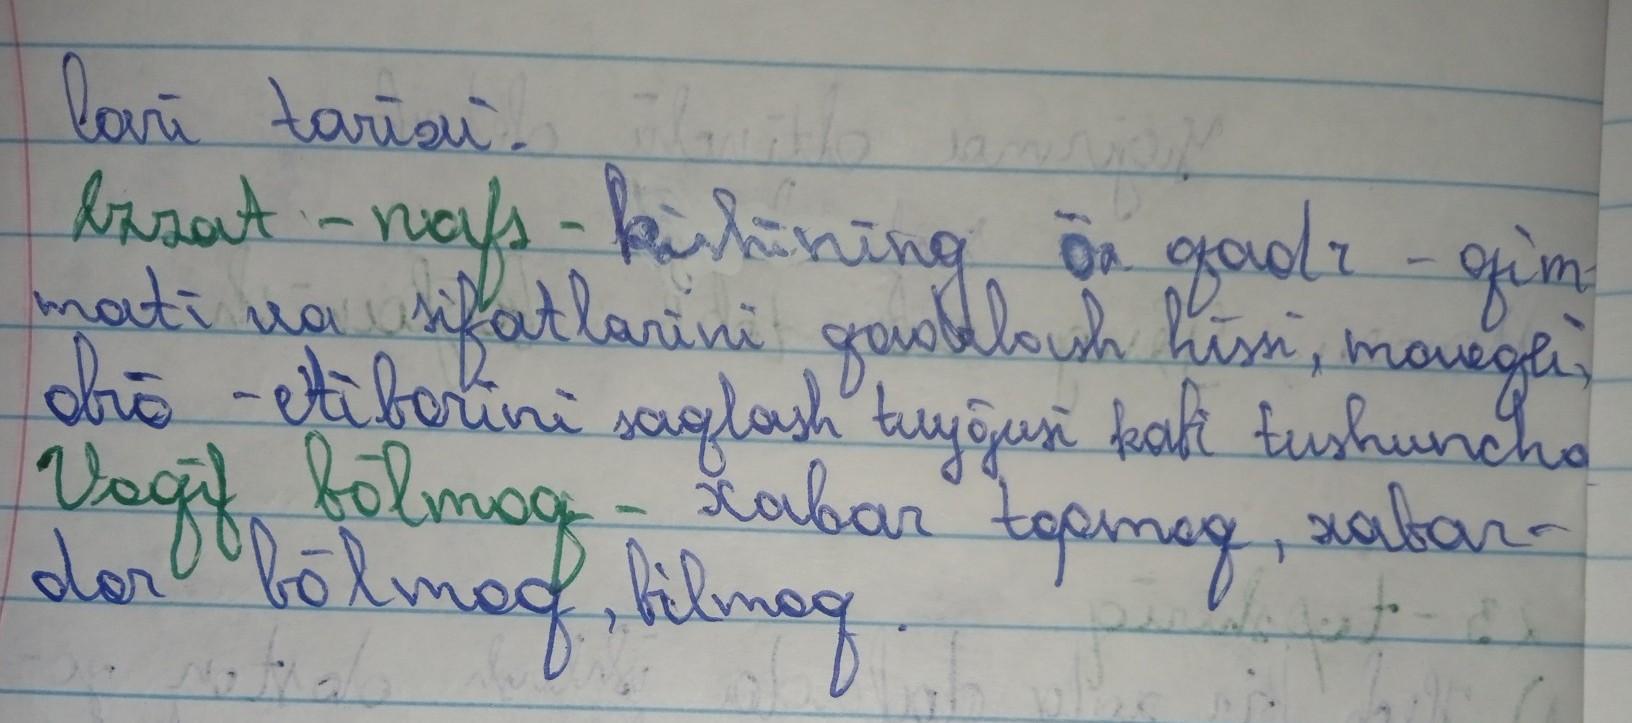 lari tarixi.
Izzat - nafs - kishining ōz qadr - qim-
mati va sifatlarini qadrlash hissi, mavqei,
obrō - etiborini saqlash tuyğusi kabi tushuncha
Voqif bōlmoq - xabar topmoq, xabar-
dor bōlmoq, bilmoq.